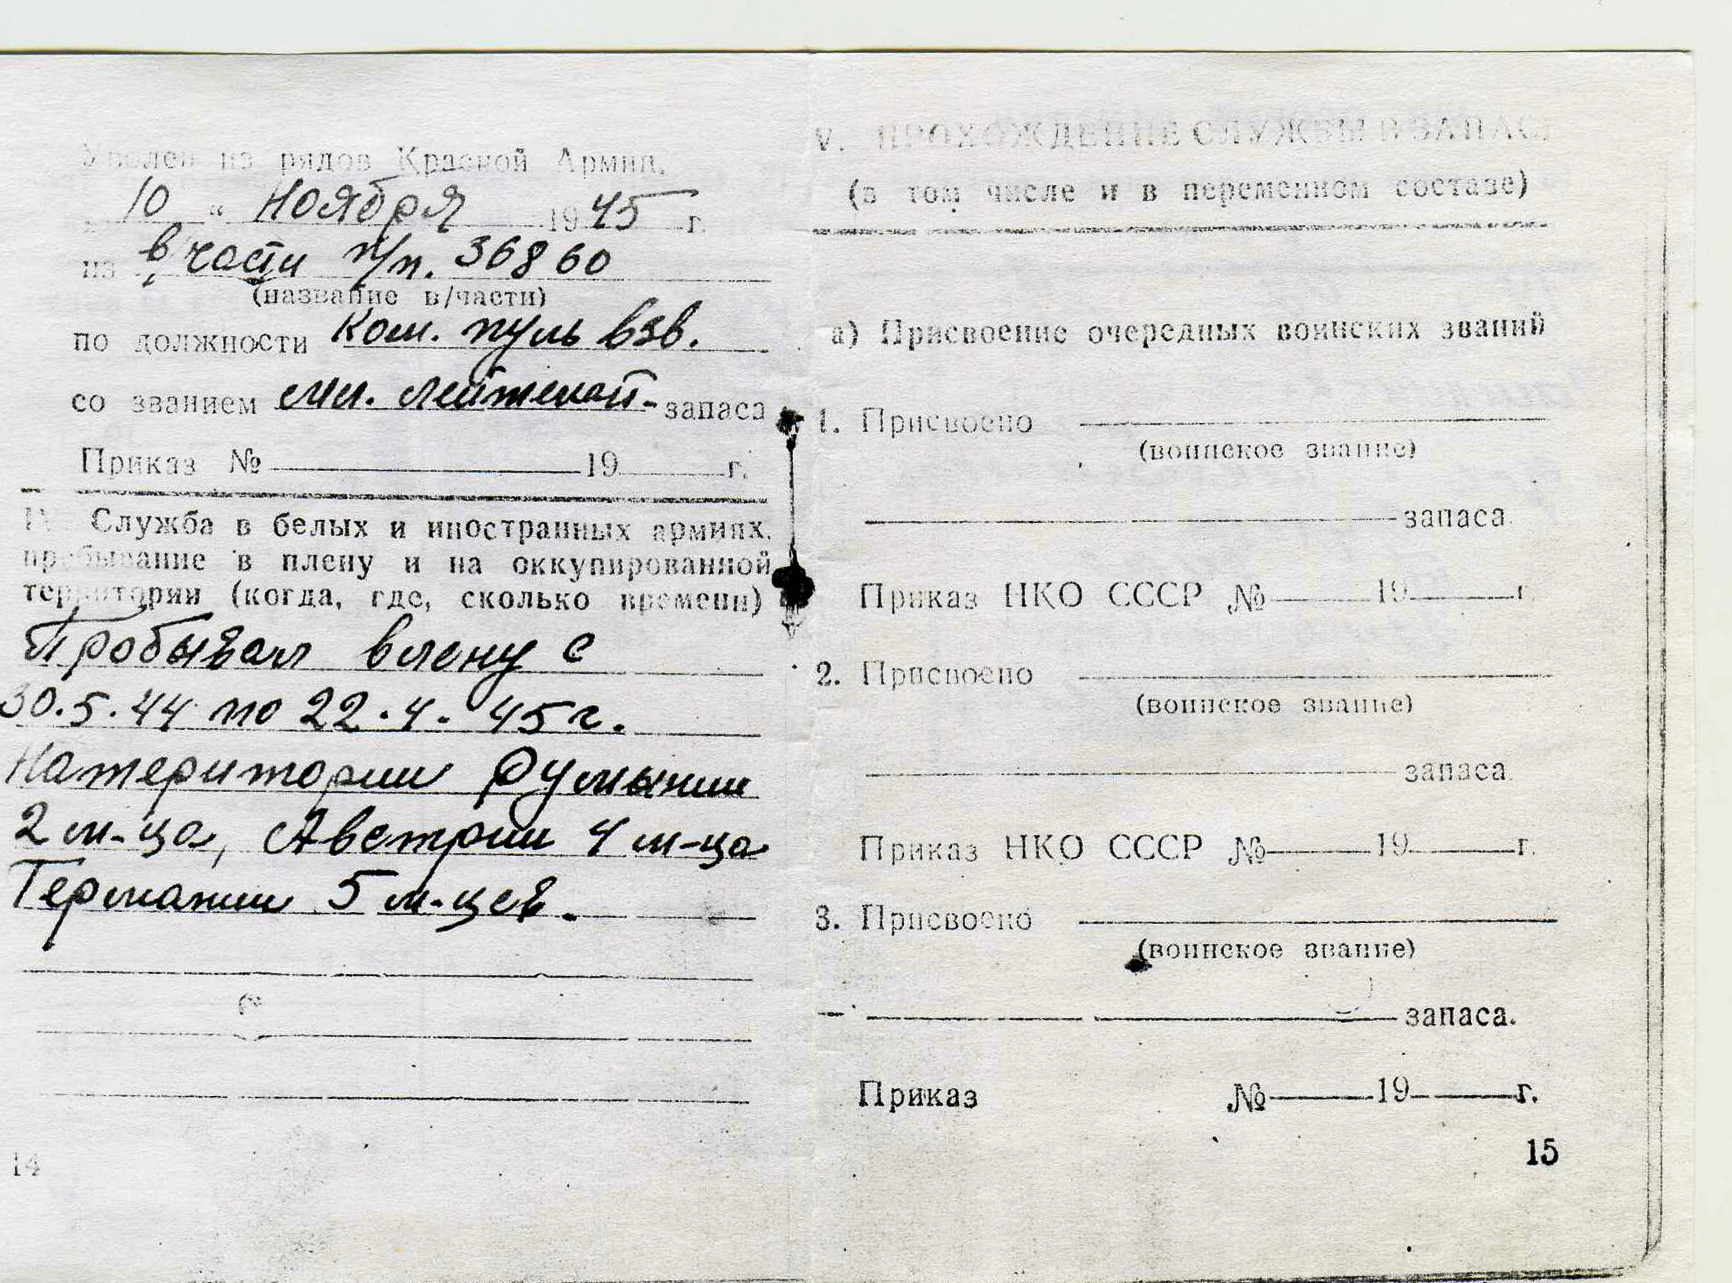 Уволен из рядов Красной Армии.
10 " Ноября 1945 г.
из в/части п/п. 36860
(название в/части)
по должности Ком. пуль взв.
со званием мл. лейтенант запаса
Приказ № 19 г.
IV. Служба в белых и иностранных армиях,
пребывание в плену и на оккупированной
территории (когда, где, сколько времени)
Пробывал вплену с
30.5.44 по 22.4.45г.
Натеритории Румынии
2 м-ца, Австрии 4 м-ца
Германии 5 м-цев.
14
V. ПРОХОЖДЕНИЕ СЛУЖБЫ В ЗАПАСЕ
(в том числе и в переменном составе)
а) Присвоение очередных воинских званий
1. Присвоено
(воинское звание)
запаса
Приказ НКО СССР № 19 г.
2. Присвоено
(воинское звание)
запаса
Приказ НКО СССР № 19 г.
3. Присвоено
(воинское звание)
запаса.
Приказ № 19 г.
15